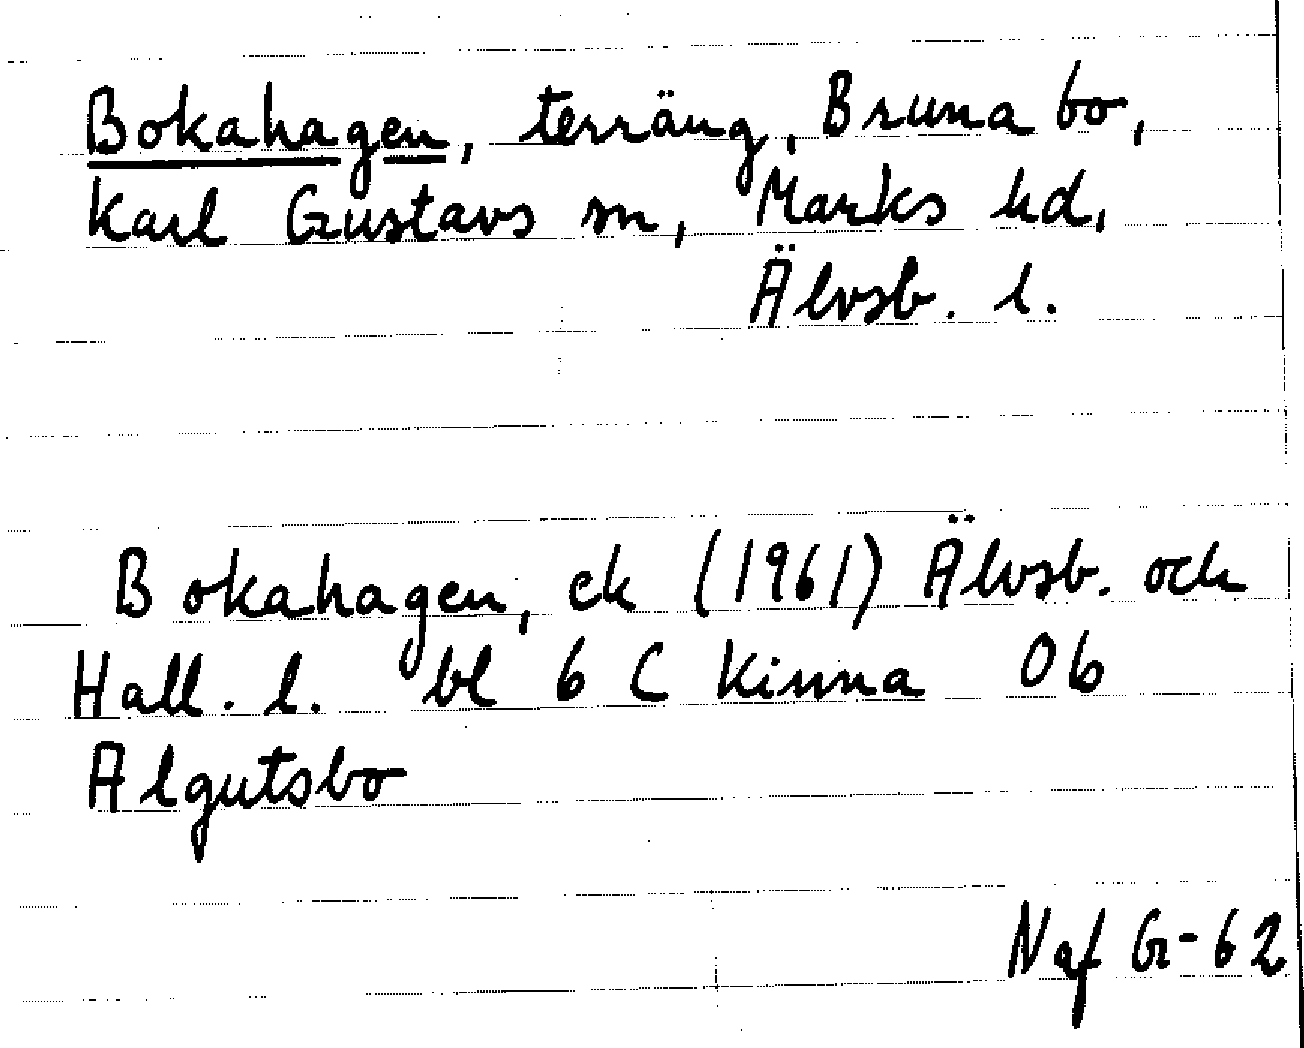 Bokahagen, terräng, Brunabo,
Karl Gustavs sn, Marks hd,
Älvsb. l.
Bokahagen, ek (1961) Älvsb. och
Hall. l. bl 6 C Kinna 0b
Algutsbo
Naf G-62